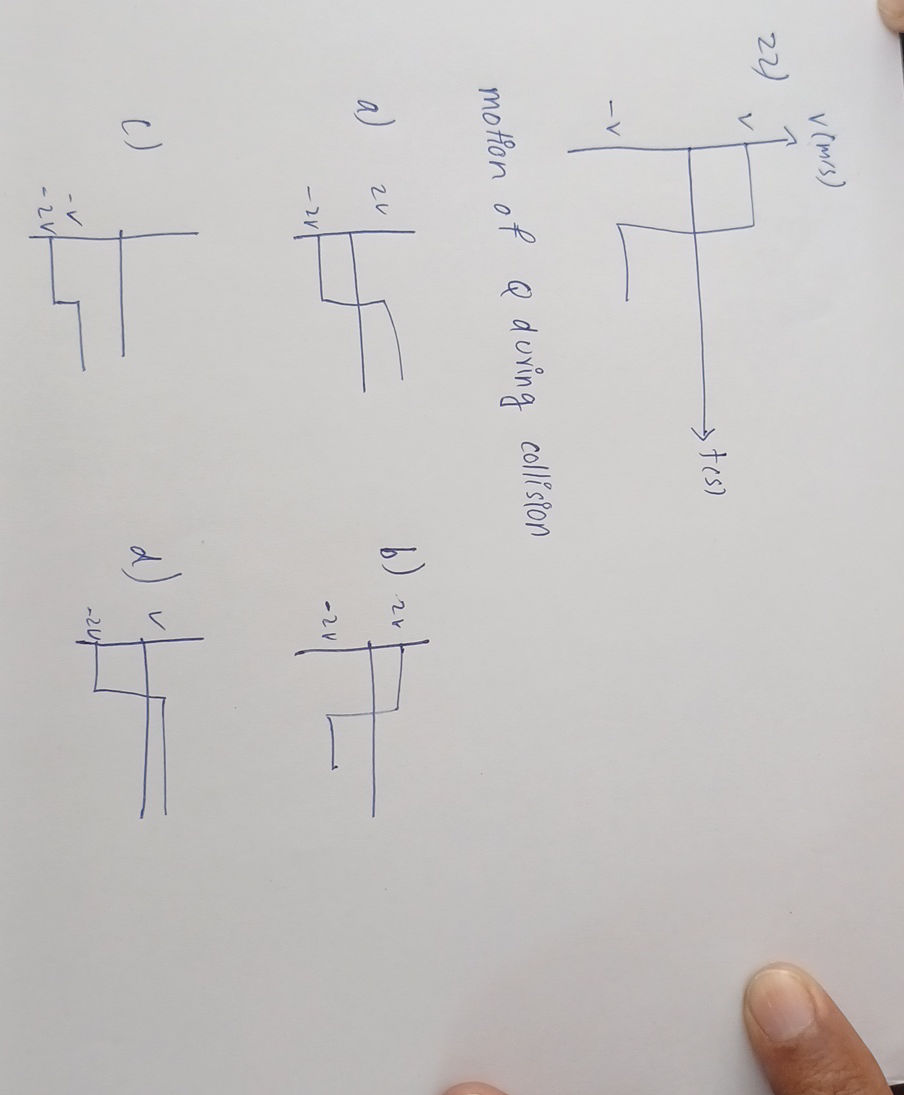 22)
v(m/s)
v
-v
t(s)
motion of Q during collision
a)
2v
-2v
b)
2v
-2v
c)
-v
-2v
d)
v
-2v